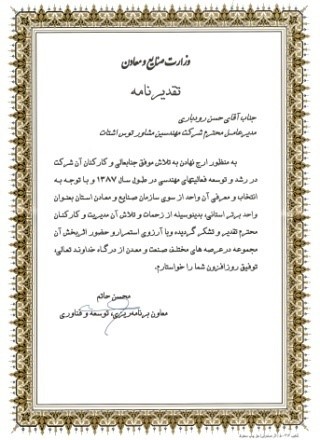 وزارت صنایع و معادن
تقدیرنامه
جناب آقای حسن رودباری
مدیرعامل محترم شرکت مهندسین مشاور توس اشتات
به منظور ارج نهادن به تلاش موفق جنابعالی و کارکنان آن شرکت
در رشد و توسعه فعالیتهای مهندسی در طول سال ۱۳۸۷ و با توجه به
انتخاب و معرفی آن واحد از سوی سازمان صنایع و معادن استان بعنوان
واحد برتر استانی، بدینوسیله از زحمات و تلاش آن مدیریت و کارکنان
محترم تقدیر و تشکر گردیده، و با آرزوی استمرار و حضور اثربخش آن
مجموعه در عرصه های مختلف صنعت و معدن از درگاه خداوند تعالی،
توفیق روزافزون شما را خواستارم.
محسن حاتم
معاون برنامه ریزی، توسعه و فناوری